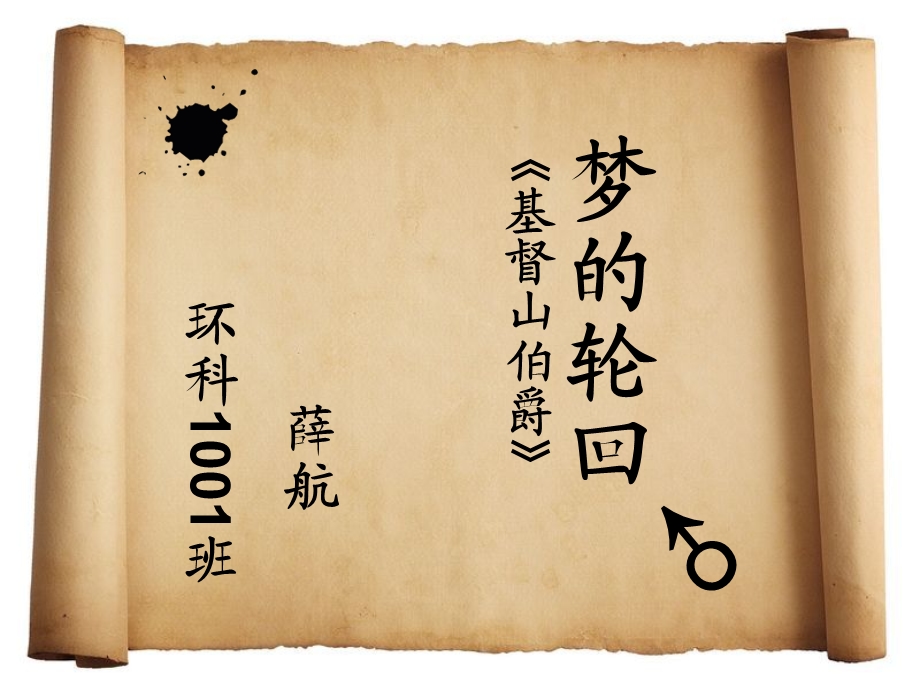 梦的轮回
《基督山伯爵》
薛航
环科1001班